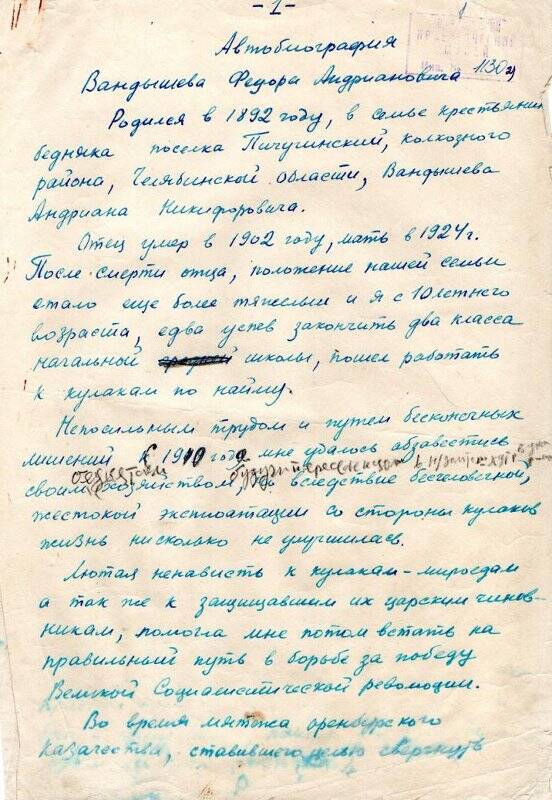 -1-
1
Инв. № 1130 2)
Автобиография
Вандышева Федора Андриановича
Родился в 1892 году, в семье крестьянин
бедняка поселка Пичугинский, колхозного
района, Челябинской области, Вандышева
Андриана Никифоровича.
Отец умер в 1902 году, мать в 1924 г.
После смерти отца, положение нашей семьи
стало еще более тяжелым и я с 10 летнего
возраста, едва успев закончить два класса
начальной школы, пошел работать
к кулакам по найму.
Непосильным трудом и путем бесконечных
лишений к 1910 году мне удалось обзавестись
своим хозяйством, вследствие бесчеловечной,
жестокой эксплоатации со стороны кулаков
жизнь нисколько не улучшилась.
Лютая ненависть к кулакам-мироедам
а так же к защищавшим их царским чинов-
никам, помогла мне потом встать на
правильный путь в борьбе за победу
Великой Социалистической революции.
Во время мятежа оренбургского
казачества, ставившего целью свергнуть